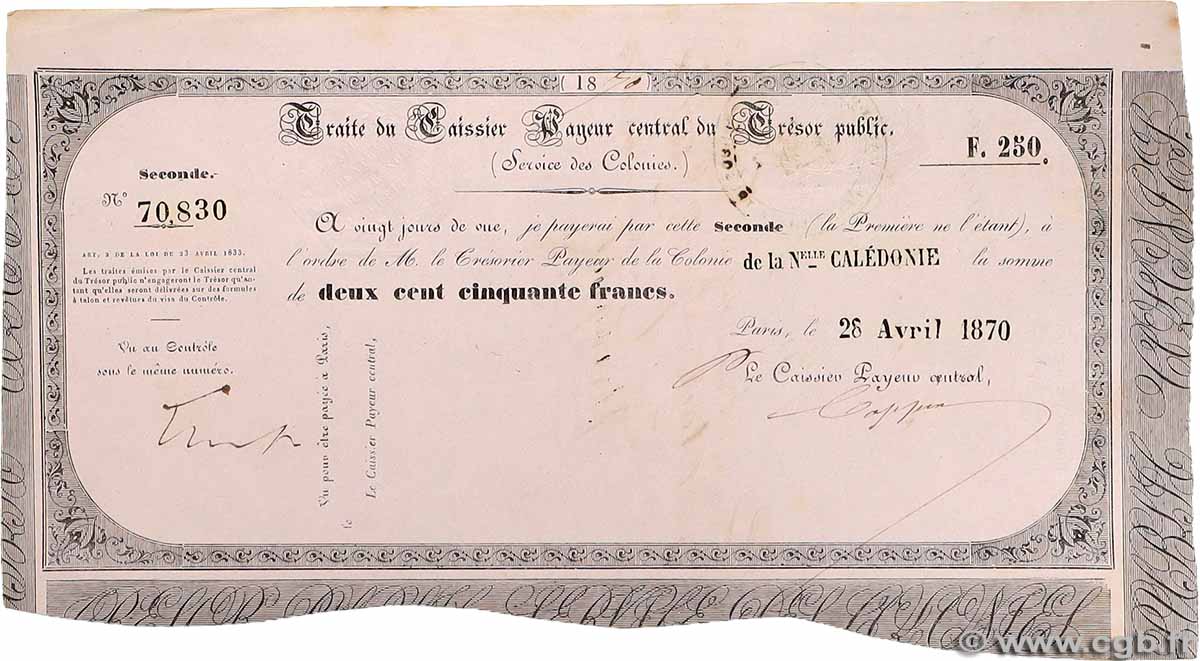 18
Traite du Caissier Payeur central du Trésor public.
(Service des Colonies.)
F. 250.
Seconde.
N° 70,830
ART. 3 DE LA LOI DU 23 AVRIL 1833.
Les traites émises par le Caissier central
du Trésor public n'engageront le Trésor qu'au-
tant qu'elles seront délivrées sur des formules
à talon et revêtues du visa du Contrôle.
Vu au Contrôle
sous le même numéro.
A vingt jours de vue, je payerai par cette Seconde (la Première ne l'étant), à
l'ordre de M. le Trésorier Payeur de la Colonie de la Nelle CALÉDONIE la somme
de deux cent cinquante francs.
Paris, le 28 Avril 1870
Le Caissier Payeur central,
Vu pour être payée à Paris,
le
Le Caissier Payeur central,
© www.cgb.fr